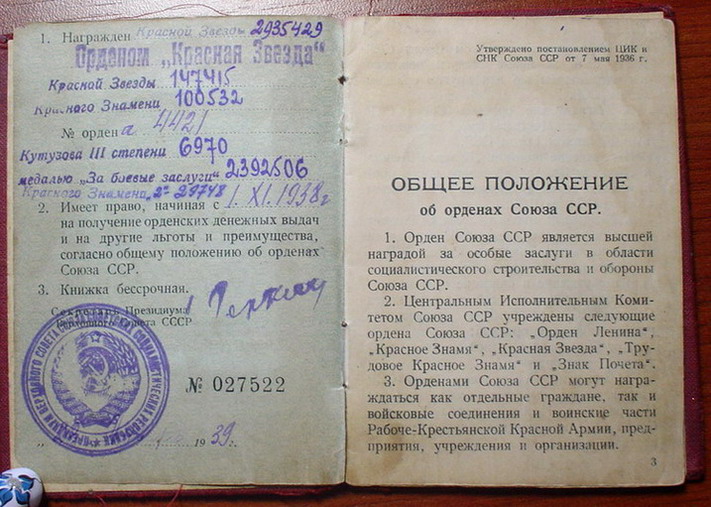 1. Награжден Красной Звезды 2935429
Орденом „Красная Звезда“
Красной Звезды 147415
Красного Знамени 100532
№ ордена 4421
Кутузова III степени 6970
медалью „За боевые заслуги“ 2392506
Красного Знамени „2“ 29748
2. Имеет право, начиная с 1. XI. 1938г
на получение орденских денежных выдач
и на другие льготы и преимущества,
согласно общему положению об орденах
Союза ССР.
3. Книжка бессрочная.
Секретарь Президиума
Верховного Совета СССР
№ 027522
1939г.
Утверждено постановлением ЦИК и
СНК Союза ССР от 7 мая 1936 г.
ОБЩЕЕ ПОЛОЖЕНИЕ
об орденах Союза ССР.
1. Орден Союза ССР является высшей
наградой за особые заслуги в области
социалистического строительства и обороны
Союза ССР.
2. Центральным Исполнительным Коми-
тетом Союза ССР учреждены следующие
ордена Союза ССР: „Орден Ленина“,
„Красное Знамя“, „Красная Звезда“, „Тру-
довое Красное Знамя“ и „Знак Почета“.
3. Орденами Союза ССР могут награ-
ждаться как отдельные граждане, так и
войсковые соединения и воинские части
Рабоче-Крестьянской Красной Армии, пред-
приятия, учреждения и организации.
3